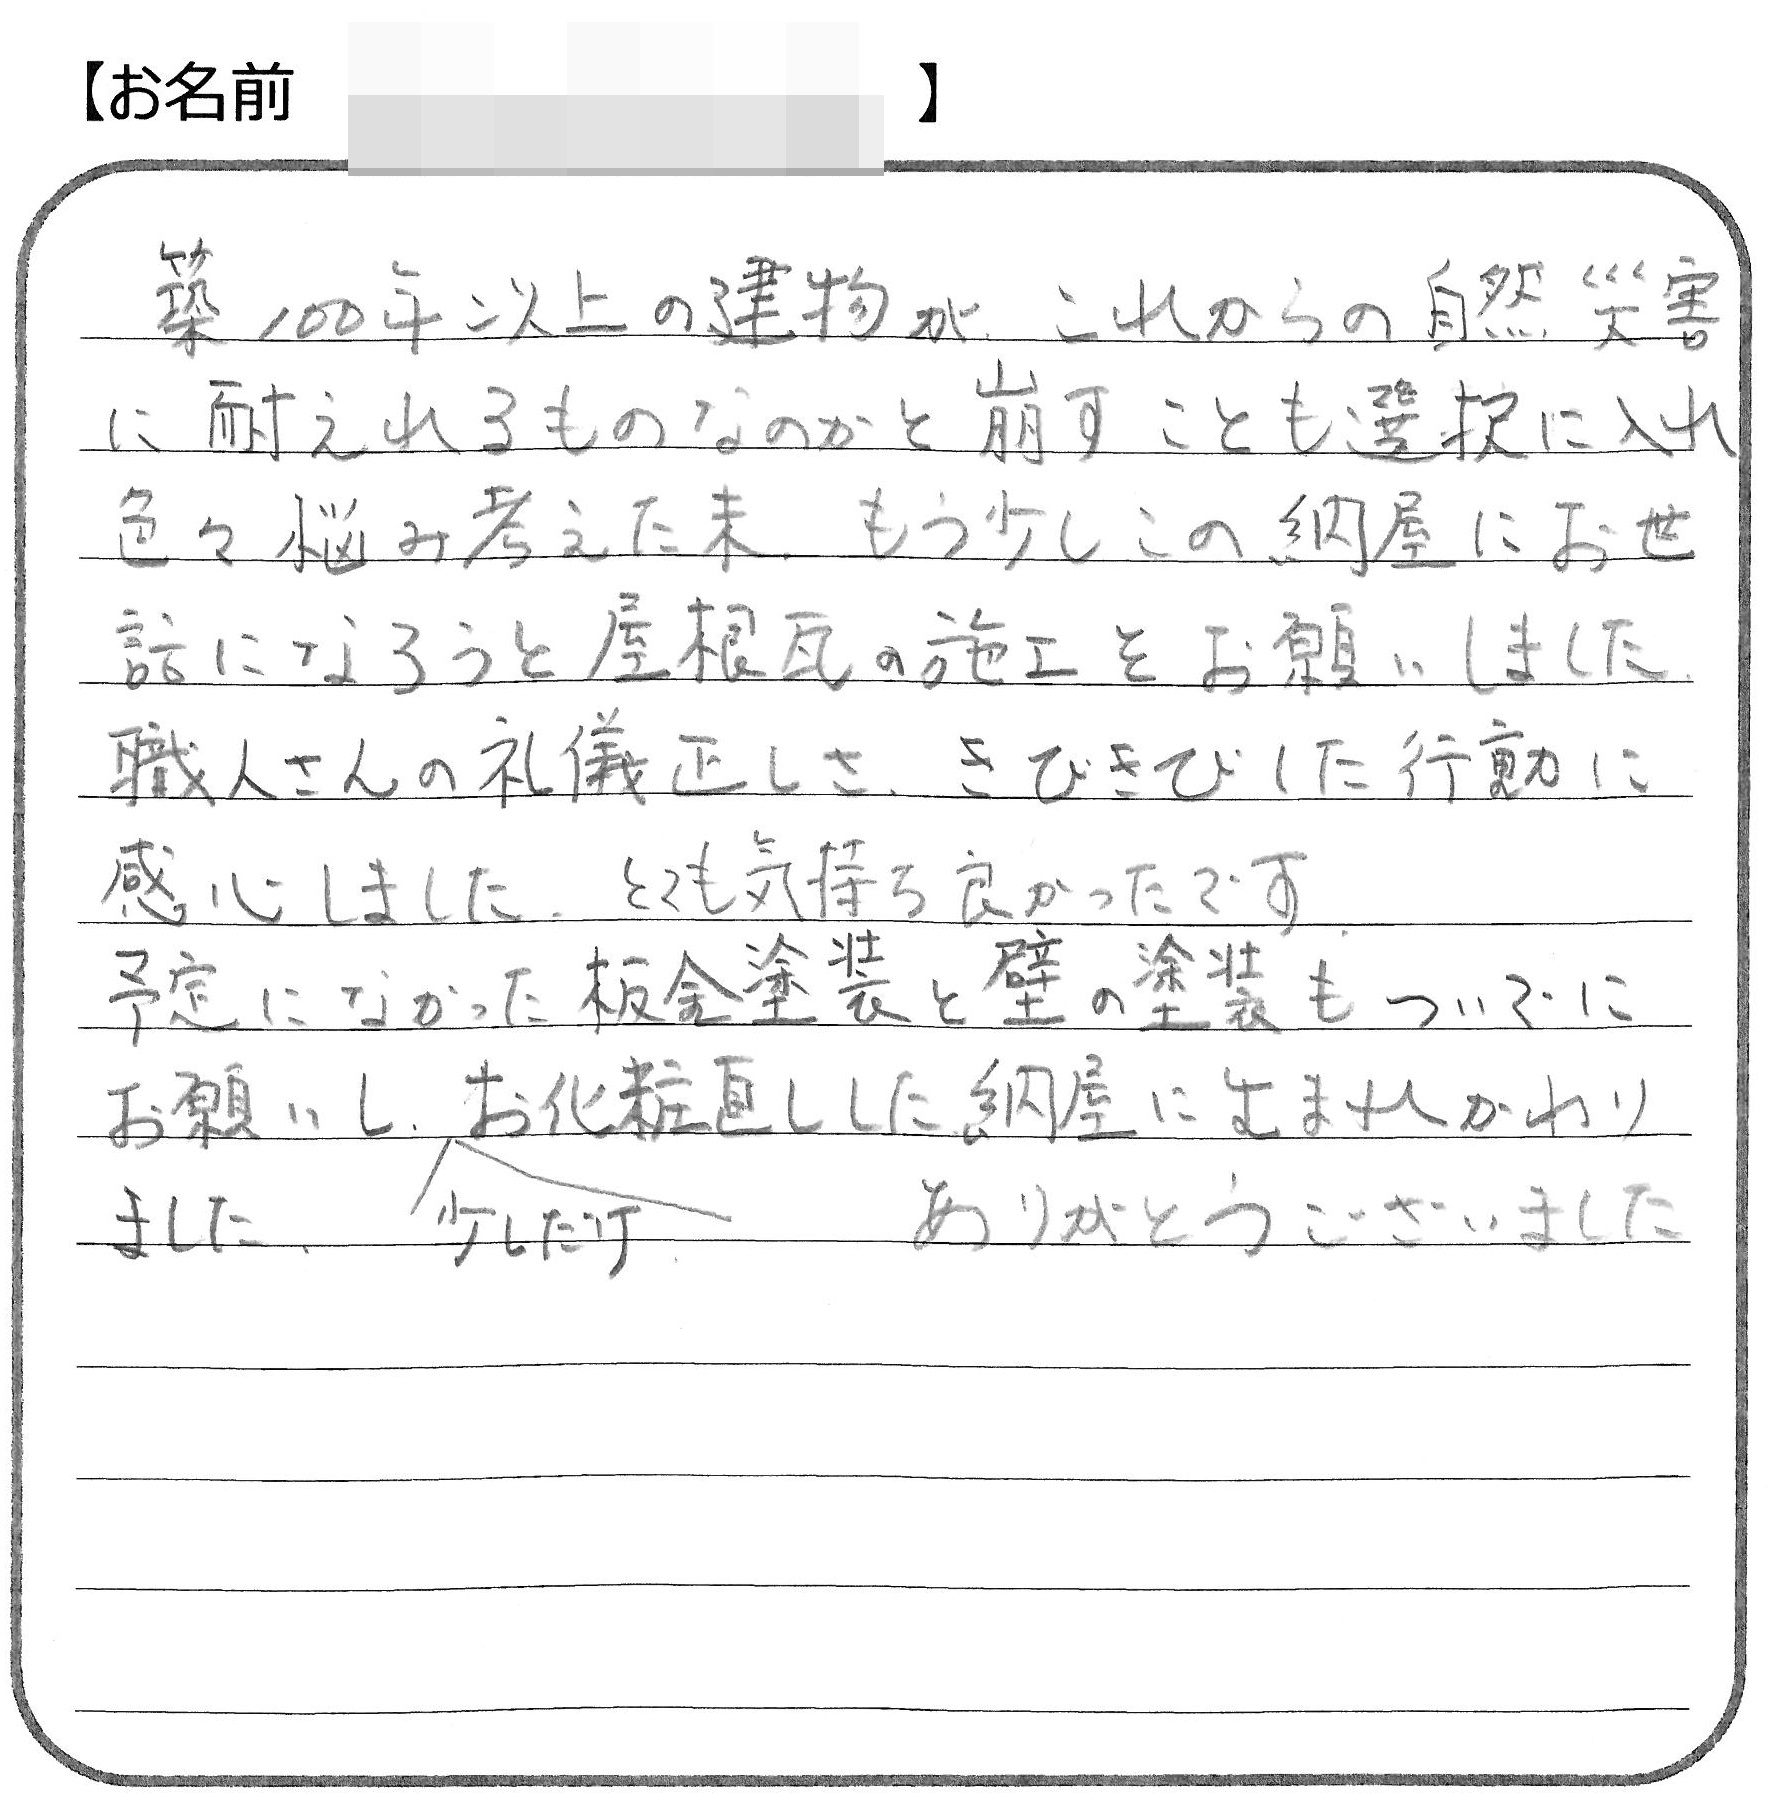 【お名前 】
築100年以上の建物が、これからの自然災害
に耐えれるものなのかと崩すことも選択に入れ
色々悩み考えた末、もう少しこの納屋にお世
話になろうと屋根瓦の施工をお願いしました。
職人さんの礼儀正しさ、きびきびした行動に
感心しました。とても気持ち良かったです
予定になかった板金塗装と壁の塗装もついでに
お願いし、お化粧直しした納屋に生まれかわり
ました。 少しだけ。 ありがとうございました